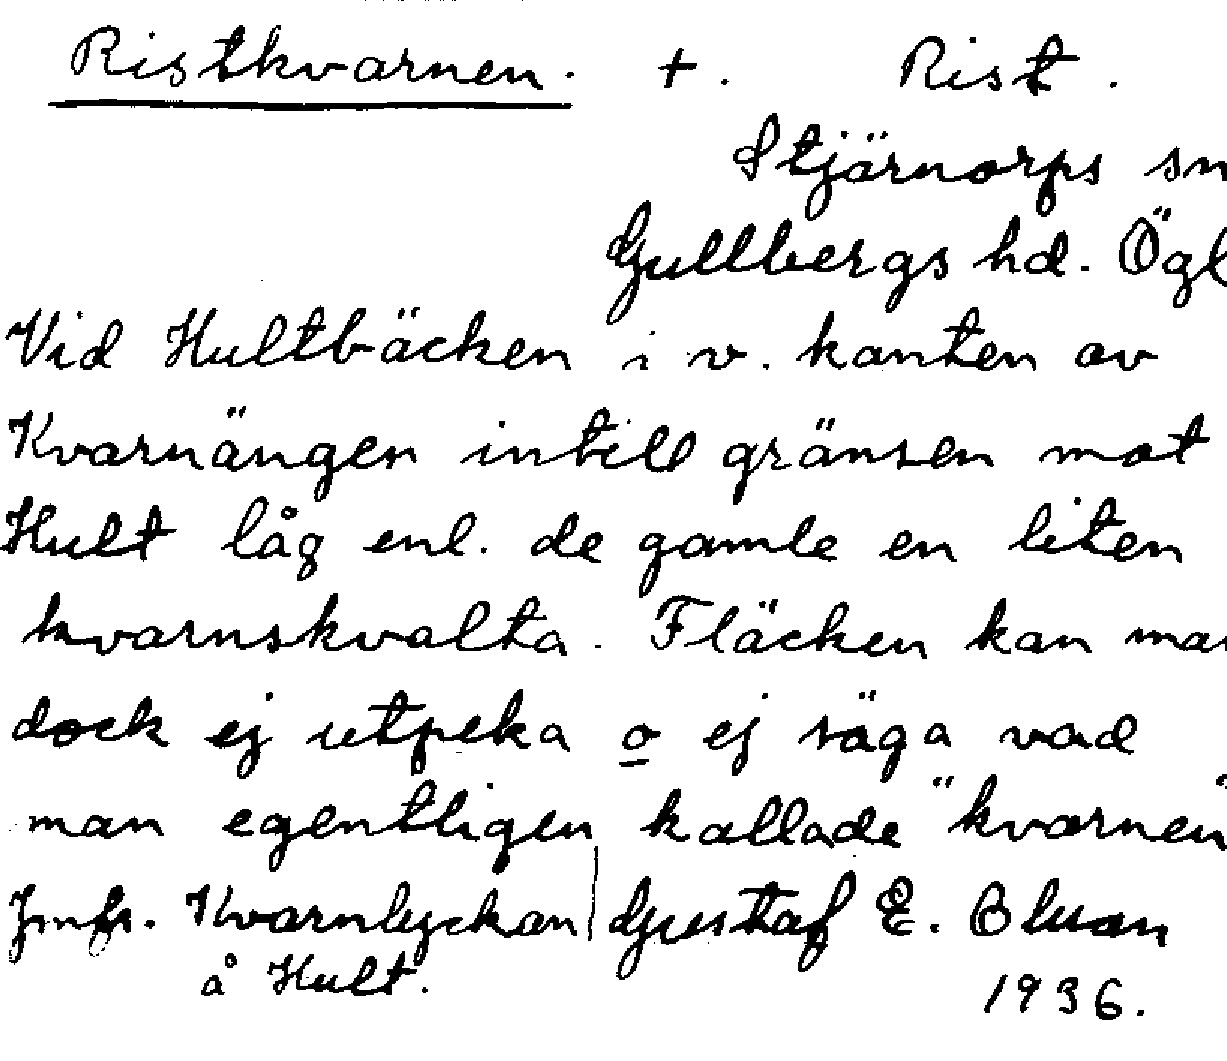 Ristkvarnen. +. Rist.
Stjärnorps sn
Gullbergs hd. Ögl
Vid Hultbäcken i v. kanten av
Kvarnängen intill gränsen mot
Hult låg enl. de gamle en liten
kvarnskvalta. Fläcken kan man
dock ej utpeka o ej säga vad
man egentligen kallade "kvarnen"
Jmfr. Kvarnlyckan Gustaf E.
å Hult.
1936.